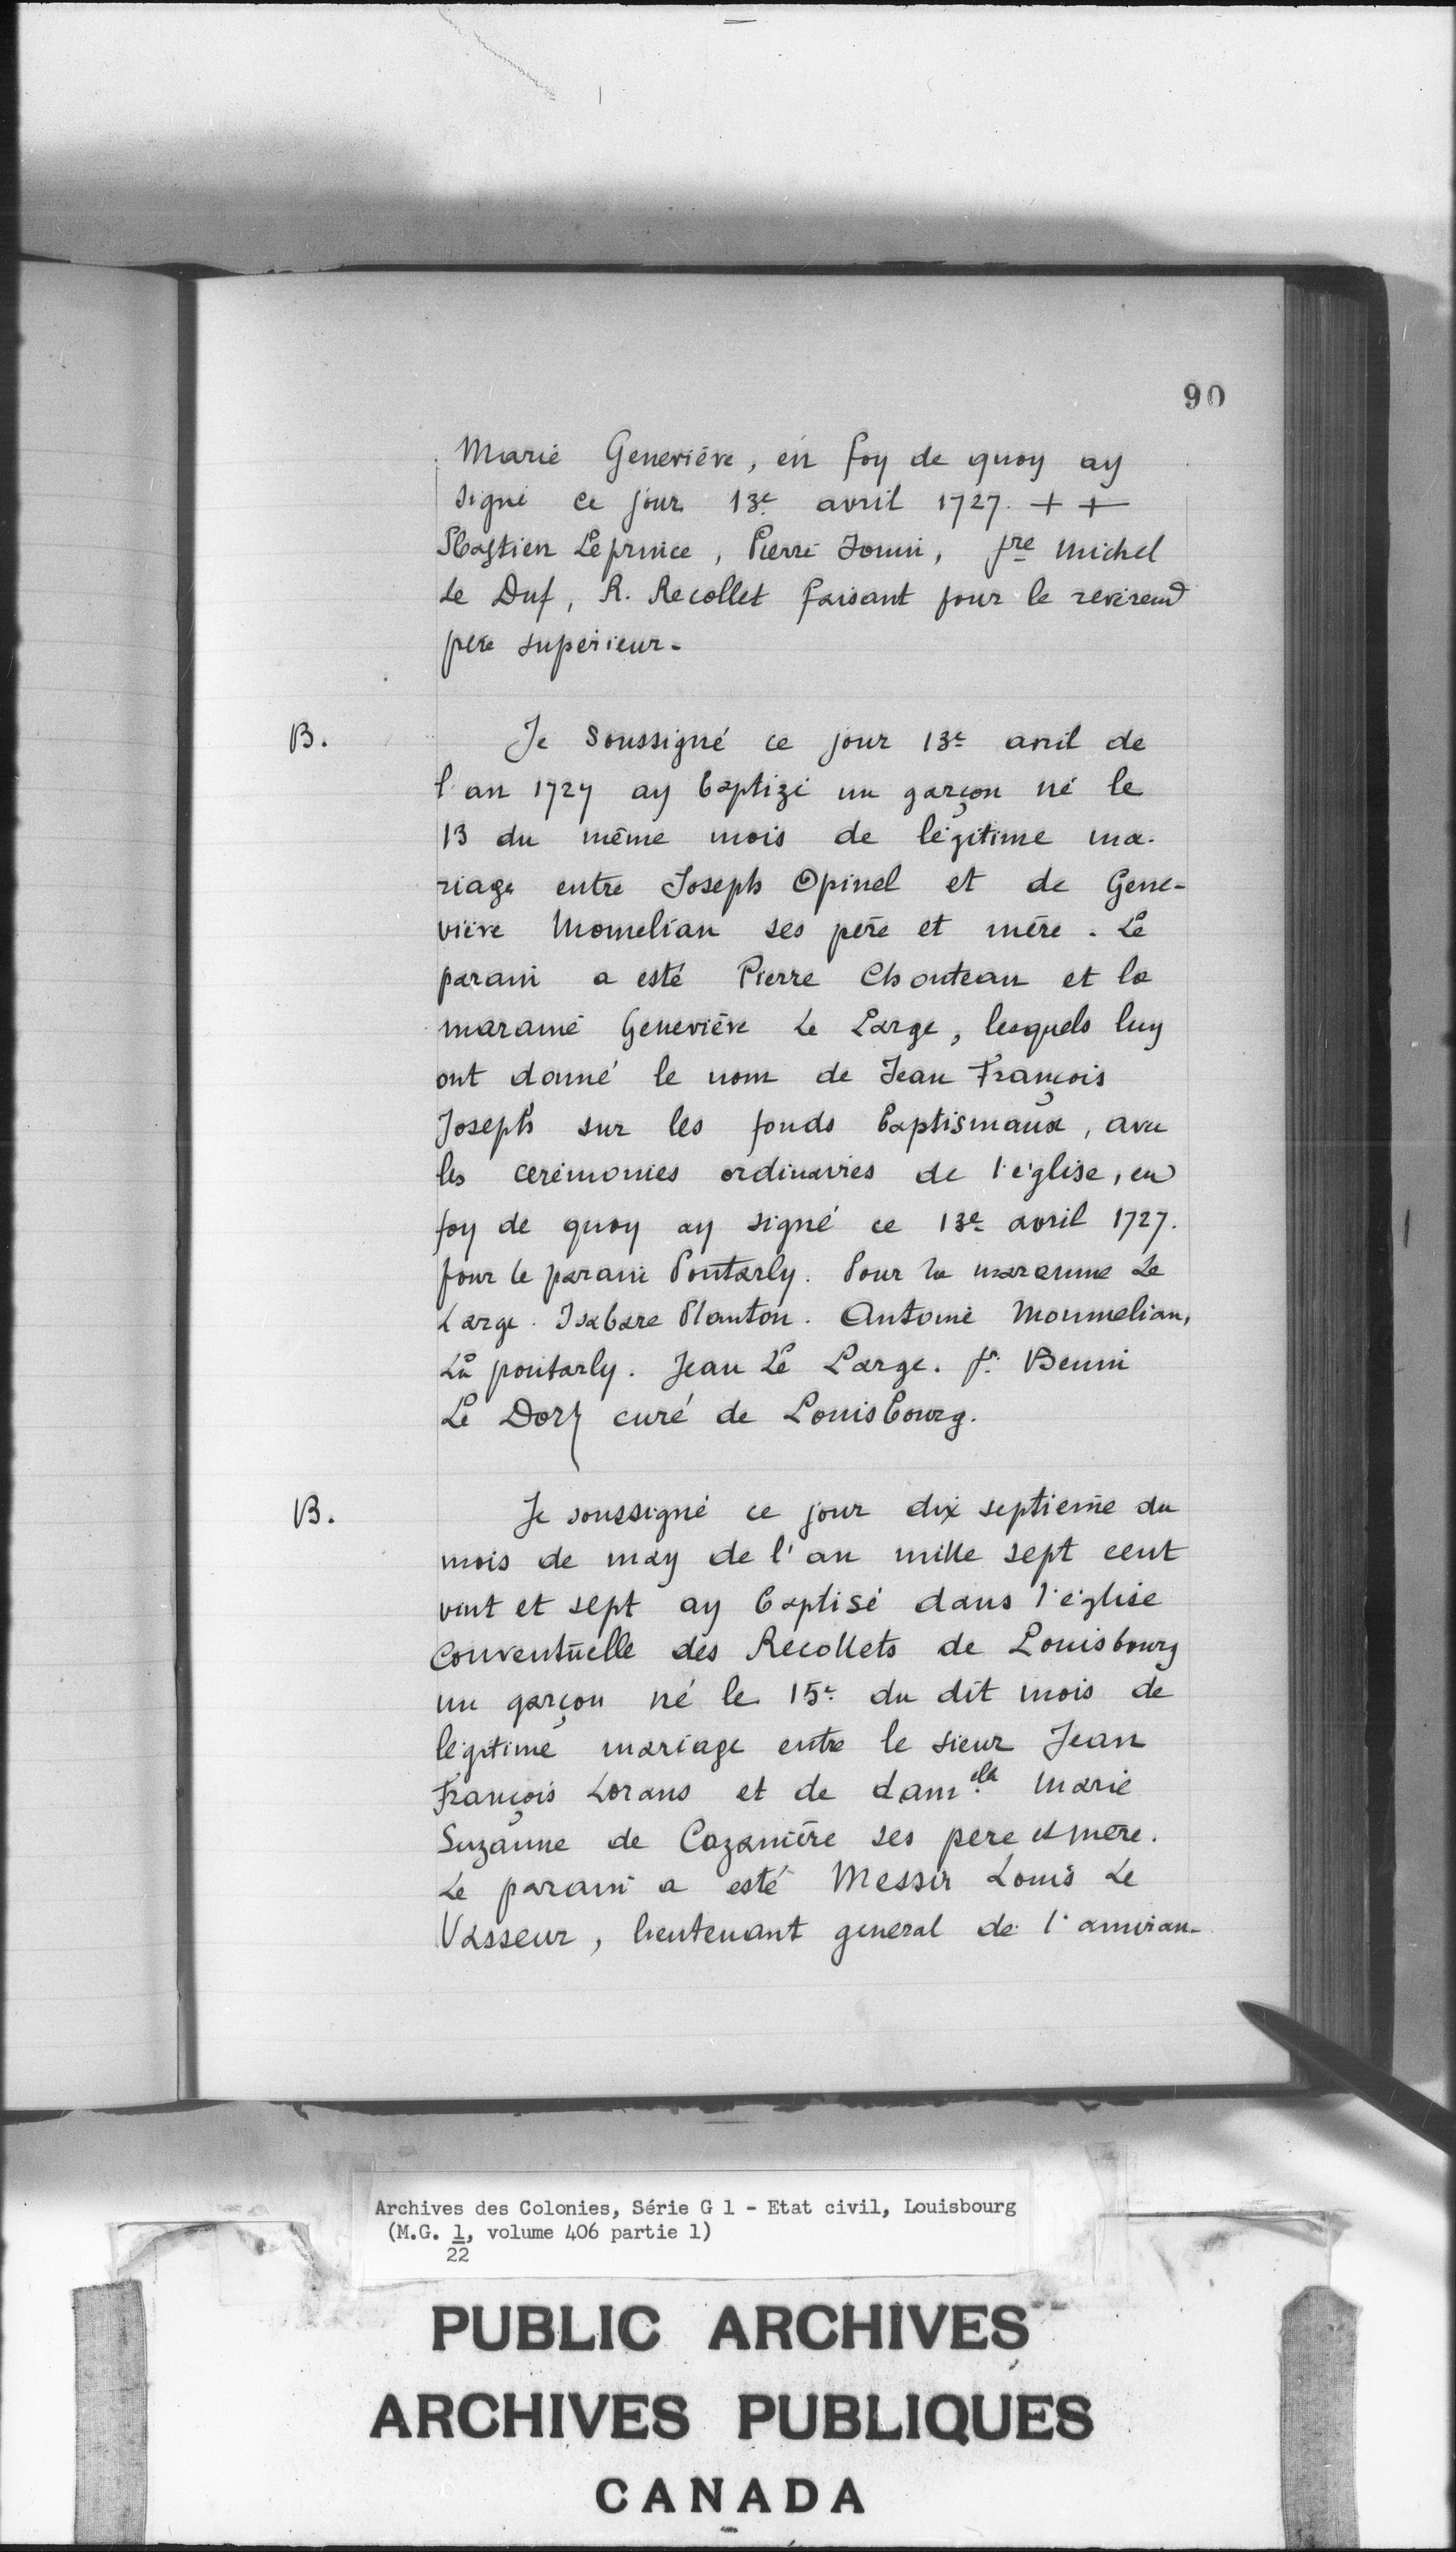 90
Marie Geneviève, en foy de quoy ay
signé ce jour 13e avril 1727. + +
Sbastien Leprince, Pierre Jouin, fre Michel
Le Duf, R. Recollet faisant pour le reverend
père supérieur.
B.
Je soussigné ce jour 13e avril de
l'an 1727 ay baptizé un garçon né le
13 du même mois de légitime ma-
riage entre Joseph Opinel et de Gene-
viève Momelian ses père et mère. Le
parain a esté Pierre Chouteau et la
maraine Geneviève Le Large, lesquels luy
ont donné le nom de Jean François
Joseph sur les fonds baptismaux, avec
les cerémonies ordinaires de l'église, en
foy de quoy ay signé ce 13e avril 1727.
pour le parain Pontarly. Pour la maraine Le
Large. Isabare Planton. Antoine Mommelian,
La pontarly. Jean Le Large. f. Benin
Le Dorz curé de Louisbourg.
B.
Je soussigné ce jour dix septième du
mois de may de l'an mille sept cent
vint et sept ay baptisé dans l'église
conventuelle des Recollets de Louisbourg
un garçon né le 15e du dit mois de
légitime mariage entre le sieur Jean
François Lorans et de damelle Marie
Suzanne de Cazanière ses père et mère.
Le parain a esté Messir Louis Le
Vasseur, lieutenant general de l'amirau-
Archives des Colonies, Série G 1 - Etat civil, Louisbourg
(M.G. 1, volume 406 partie 1)
22
PUBLIC ARCHIVES
ARCHIVES PUBLIQUES
CANADA